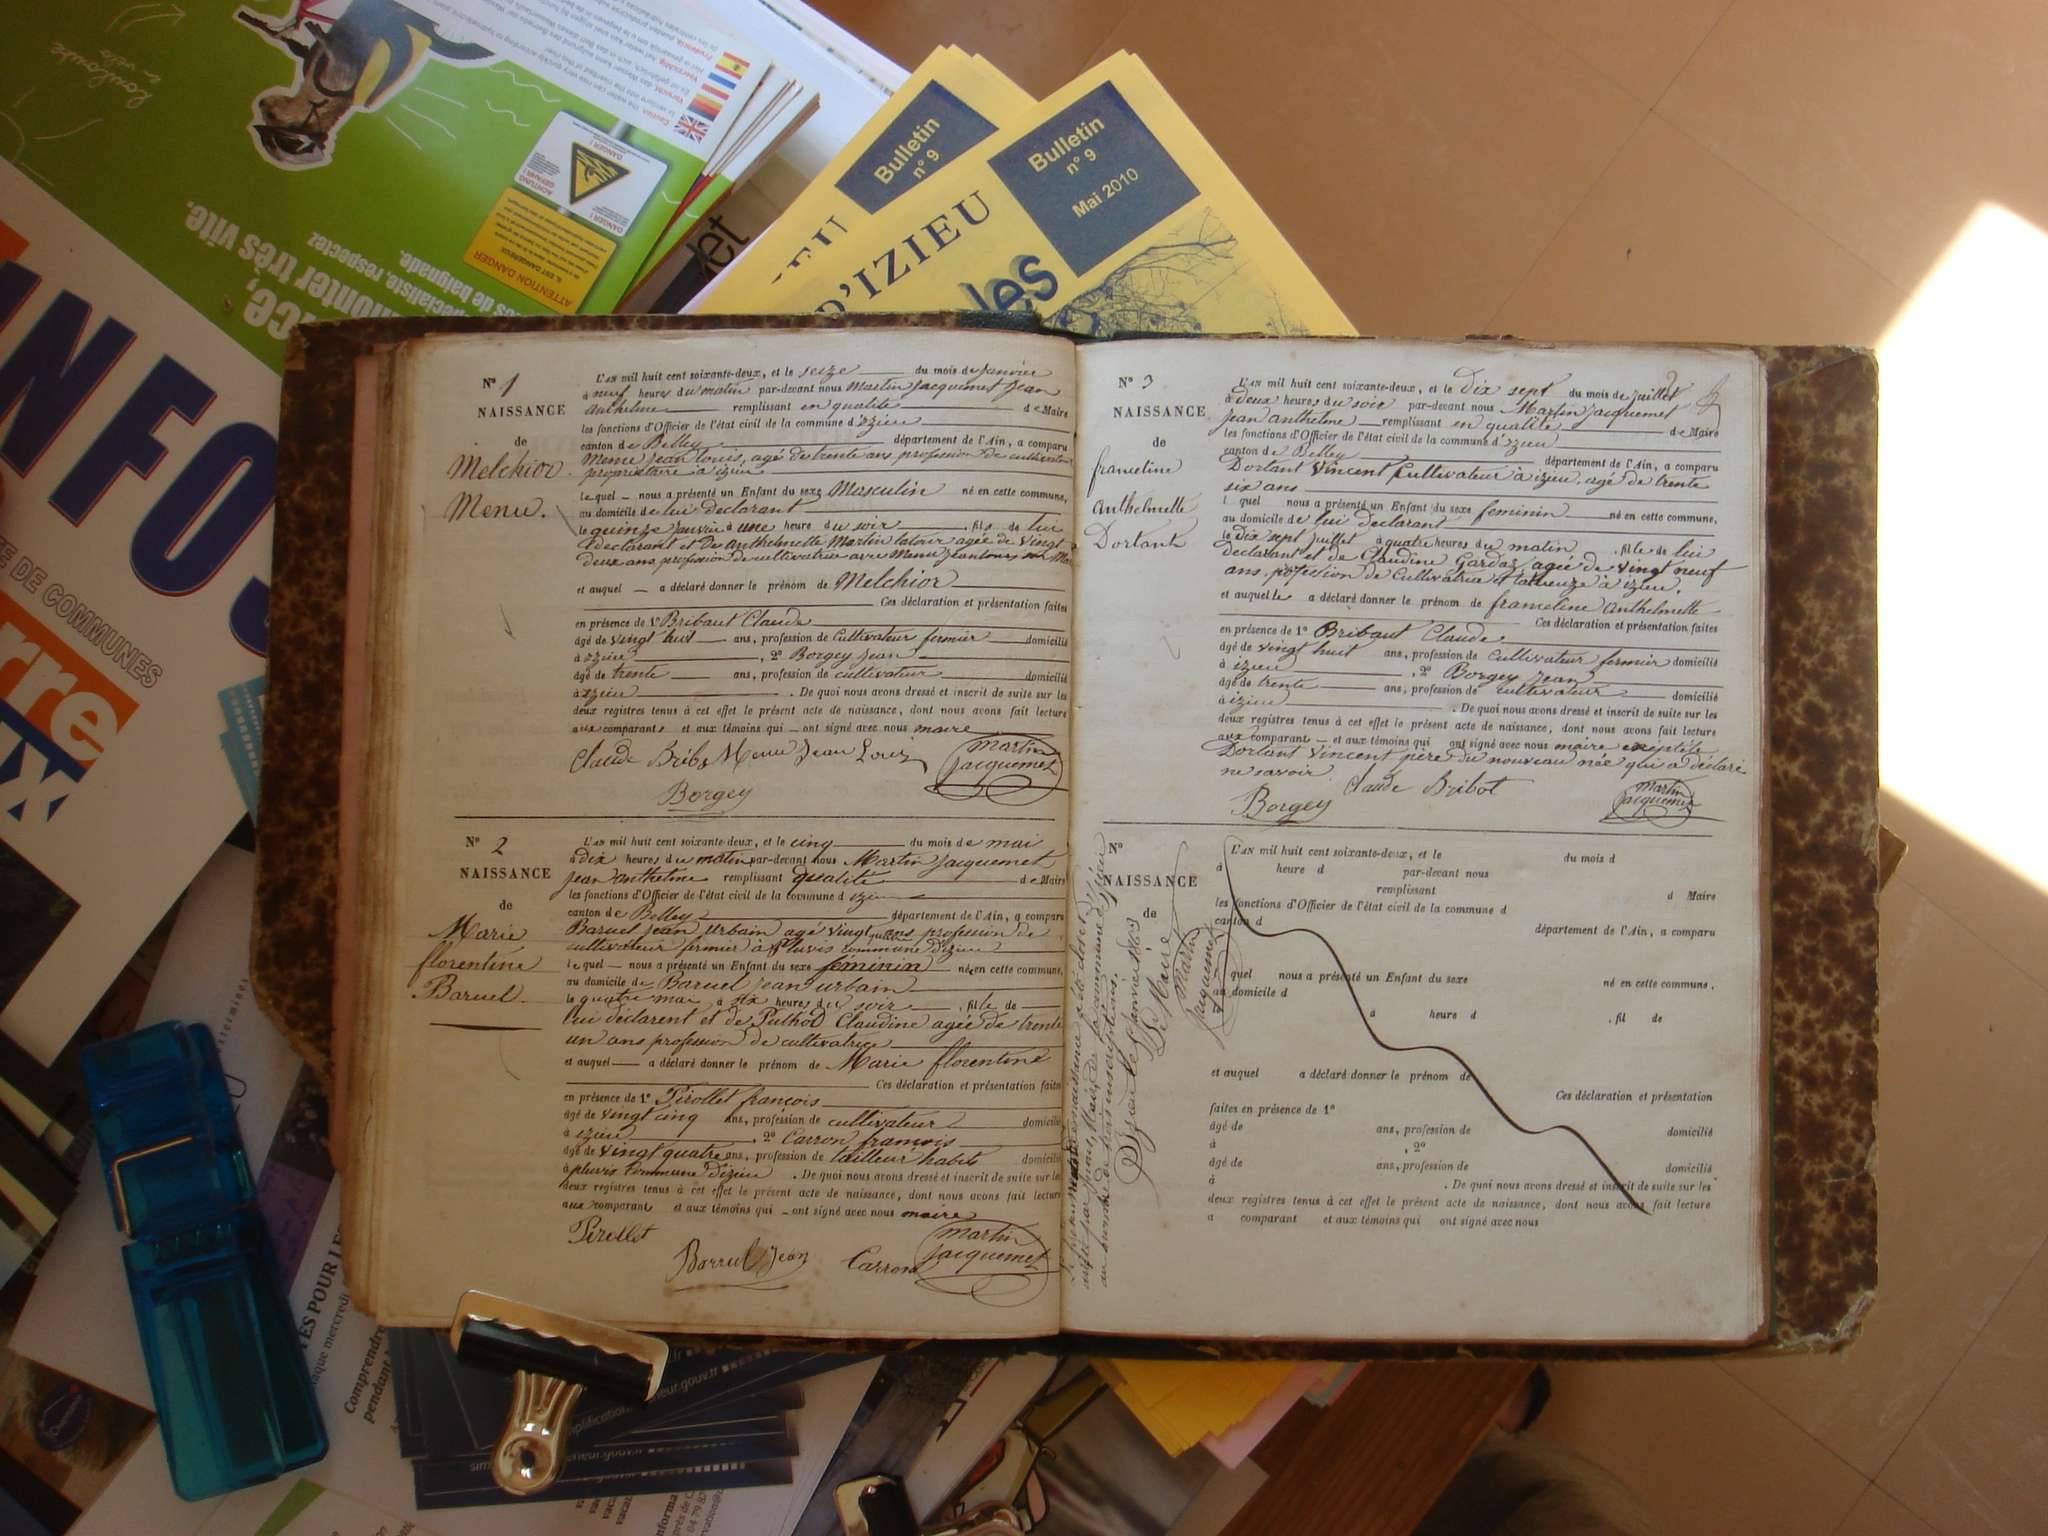 Bulletin
n° 9
Bulletin
n° 9
Mai 2010
D'IZIEU
les
INFOS
DE COMMUNES
ATTENTION DANGER
DANGER !
N° 1
NAISSANCE
de
Melchior
Menu.
L'AN mil huit cent soixante-deux, et le seize du mois de janvier
à neuf heures du matin par-devant nous Martin Jacquemet Jean
anthelme remplissant en qualité de Maire
les fonctions d'Officier de l'état civil de la commune d'izieu
canton de Belley département de l'Ain, a comparu
Menu Jean Louis, agé de trente ans profession de cultivateur
propriétaire à izieu
lequel nous a présenté un Enfant du sexe Masculin né en cette commune,
au domicile de lui declarant
le quinze janvier à une heure du soir , fils de lui
declarant et de Anthelmette Martin latour agée de vingt
deux ans profession de cultivatrice avec Menu Jean Louis son
et auquel a déclaré donner le prénom de Melchior
Ces déclaration et présentation faites
en présence de 1° Bribaut Claude
âgé de vingt huit ans, profession de Cultivateur fermier domicilié
à izieu , 2° Borgey Jean
âgé de trente ans, profession de cultivateur domicilié
à izieu . De quoi nous avons dressé et inscrit de suite sur les
deux registres tenus à cet effet le présent acte de naissance, dont nous avons fait lecture
aux comparant et aux témoins qui ont signé avec nous maire
Claude Bribo Menu Jean Louis Martin
Jacquemet
Borgey
N° 2
NAISSANCE
de
Marie
florentine
Baruel.
L'AN mil huit cent soixante-deux, et le cinq du mois de mai
à dix heures du matin par-devant nous Martin Jacquemet
Jean anthelme remplissant qualité de Maire
les fonctions d'Officier de l'état civil de la commune d izieu
canton de Belley département de l'Ain, a comparu
Baruel Jean Urbain agé vingt quatre ans profession de
cultivateur fermier à Pluvis commune d'izieu
lequel nous a présenté un Enfant du sexe féminin née en cette commune,
au domicile de Baruel Jean urbain
le quatre mai à six heures du soir , fille de
lui déclarent et de Puthod Claudine agée de trente
un ans profession de cultivatrice
et auquel a déclaré donner le prénom de Marie florentine
Ces déclaration et présentation faites
en présence de 1° Pirollet francois
âgé de vingt cinq ans, profession de cultivateur domicilié
à izieu , 2° Carron francois
âgé de vingt quatre ans, profession de tailleur habits domicilié
à pluvis Commune d'izieu . De quoi nous avons dressé et inscrit de suite sur les
deux registres tenus à cet effet le présent acte de naissance, dont nous avons fait lecture
aux comparant et aux témoins qui ont signé avec nous maire
Pirollet
Barruel Jean Carron Martin
Jacquemet
N° 3
NAISSANCE
de
franceline
Anthelmette
Dortant
L'AN mil huit cent soixante-deux, et le Dix sept du mois de juillet
à deux heures du soir par-devant nous Martin Jacquemet
Jean anthelme remplissant en qualité de Maire
les fonctions d'Officier de l'état civil de la commune d'izieu
canton de Belley département de l'Ain, a comparu
Dortant Vincent Cultivateur à izieu, agé de trente
six ans
l quel nous a présenté un Enfant du sexe feminin né en cette commune,
au domicile de lui declarant
le Dix sept juillet à quatre heures du matin , fille de lui
declarant et de Claudine Gardaz agée de vingt neuf
ans, profession de Cultivatrice à izieu.
et auquelle a déclaré donner le prénom de franceline Anthelmette
Ces déclaration et présentation faites
en présence de 1° Bribaut Claude
âgé de vingt huit ans, profession de cultivateur fermier domicilié
à izieu , 2° Borgey Jean
âgé de trente ans, profession de cultivateur domicilié
à izieu . De quoi nous avons dressé et inscrit de suite sur les
deux registres tenus à cet effet le présent acte de naissance, dont nous avons fait lecture
aux comparant et aux témoins qui ont signé avec nous maire
Dortant Vincent père du nouveau née qui a déclaré
ne savoir Claude Bribot Martin
Jacquemet
Borgey
N°
NAISSANCE
de
L'AN mil huit cent soixante-deux, et le du mois d
à heure d par-devant nous
remplissant d Maire
les fonctions d'Officier de l'état civil de la commune d
canton d département de l'Ain, a comparu
quel nous a présenté un Enfant du sexe né en cette commune.
au domicile d
à heure d , fil de
et auquel a déclaré donner le prénom de
Ces déclaration et présentation
faites en présence de 1°
âgé de ans, profession de domicilié
à , 2°
âgé de ans, profession de domicilié
à . De quoi nous avons dressé et inscrit de suite sur les
deux registres tenus à cet effet le présent acte de naissance, dont nous avons fait lecture
a comparant et aux témoins qui ont signé avec nous
Le Maire
Martin
Jacquemet